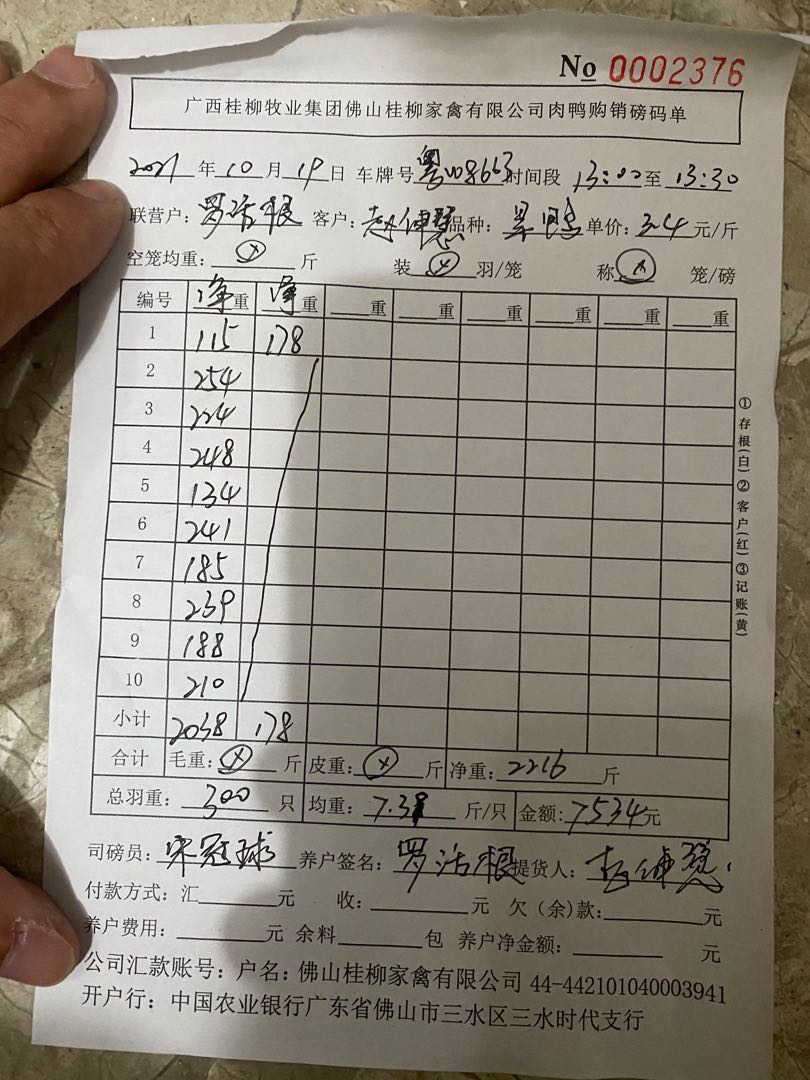 No 0002376
广西桂柳牧业集团佛山桂柳家禽有限公司肉鸭购销磅码单
2021 年 10 月 19 日 车牌号 粤 时间段 13:00 至 13:30
联营户： 罗活根 客户： 赵伟慧 品种： 单价： 3.4 元/斤
空笼均重： ⊗ 斤 装 ⊗ 羽/笼 称 ⊗ 笼/磅
编号 净重 净重 重 重 重 重 重 重
1 115 178
2 254
3 224
4 248
5 134
6 241
7 185
8 239
9 188
10 210
小计 2038 178
合计 毛重： ⊗ 斤 皮重： ⊗ 斤 净重： 2216 斤
总羽重： 300 只 均重： 7.38 斤/只 金额： 7534 元
司磅员： 宋冠球 养户签名： 罗活根 提货人： 赵伟慧
付款方式：汇 元 收： 元 欠（余）款： 元
养户费用： 元 余料 包 养户净金额： 元
公司汇款账号：户名：佛山桂柳家禽有限公司 44-442101040003941
开户行：中国农业银行广东省佛山市三水区三水时代支行
①存根(白)②客户(红)③记账(黄)